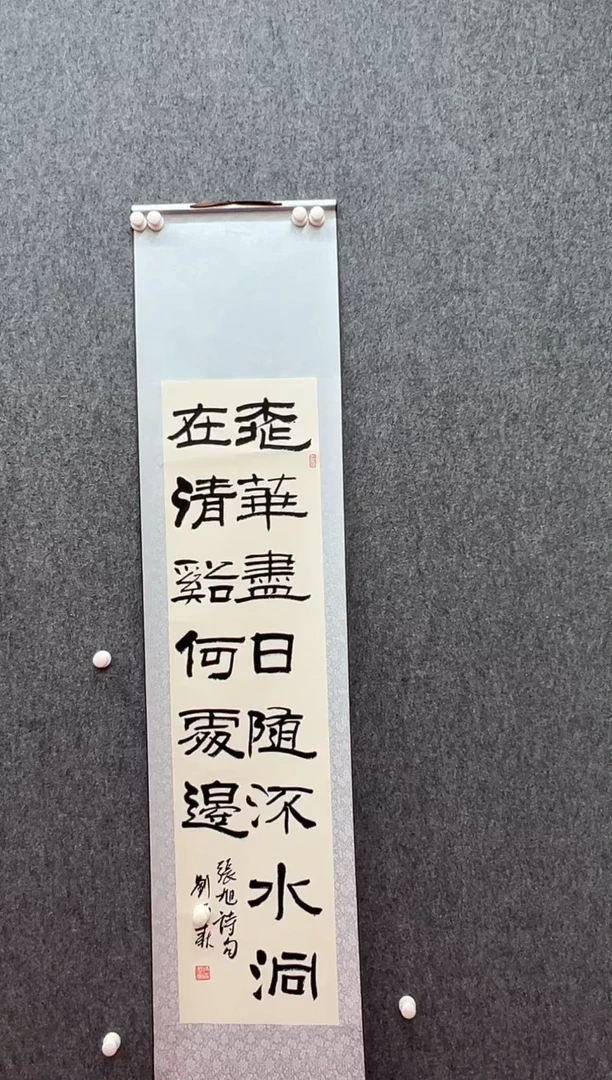 桃華盡日随流水洞
在清谿何處邊
張旭詩句
劉